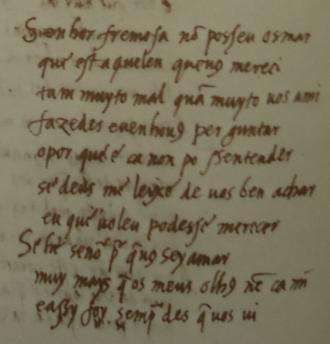 Senhor fremosa nõ posseu osmar
que est aquel en queuꝯ mereci
tam muyto mal quã muyto uos ami
fazedes e uenhouꝯ per guntar
o por que ca non po ssentender
se deus me leixe de uos ben achar
en que uoleu podesse merecer
Se he senõ por q̄uꝯ sey amar
muy mays q̄ os meus olhꝯ nē ca mī
e assy foy semp̄ des q̄ uos ui